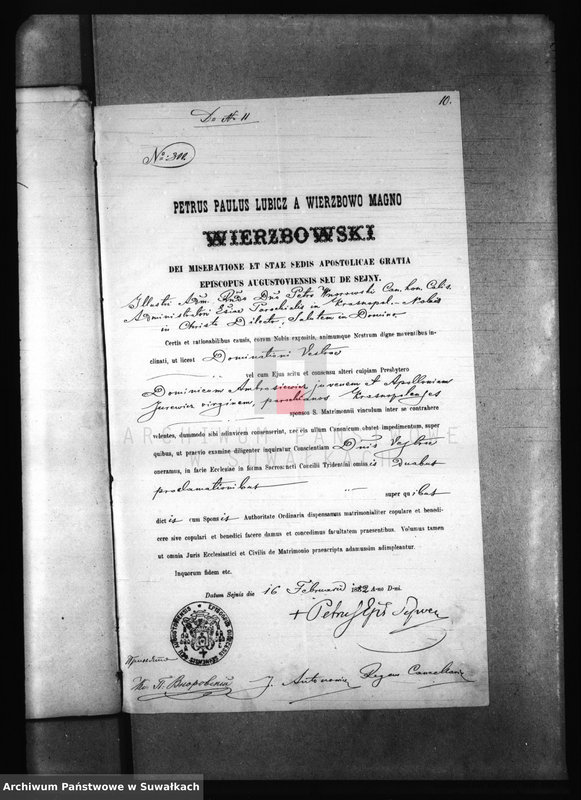 10.
Do № 11
№ 302
PETRUS PAULUS LUBICZ A WIERZBOWO MAGNO
WIERZBOWSKI
DEI MISERATIONE ET STAE SEDIS APOSTOLICAE GRATIA
EPISCOPUS AUGUSTOVIENSIS SEU DE SEJNY.
Illustri Adm. Rndo Dno Petro Wnorowski Can. hon. Calis.
Administratori Ecciae Parochialis in Krasnopol - Nobis
in Christo Dilecto, Salutem in Domino
Certis et rationabilibus causis, coram Nobis expositis, animumque Nostrum digne moventibus in-
clinati, ut liceat Dominationi Vestrae
vel cum Ejus scitu et consensu alteri cuipiam Presbytero
Dominicum Ambrosiewicz juvenem et Apolloniam
Jurewicz virginem, parochianos Krasnopolenses
sponsos S. Matrimonii vinculum inter se contrahere
volentes, dummodo sibi adinvicem consenserint, nec eis ullum Canonicum obstet impedimentum, super
quibus, ut praevio examine diligenter inquirat Conscientiam Dnis Vestrae
oneramus, in facie Ecclesiae in forma Sacrosancti Concilii Tridentini omissis duabus
proclamationibus super quibus
dictis cum Sponsis Authoritate Ordinaria dispensamus matrimonialiter copulare et benedi-
cere sive copulari et benedici facere damus et concedimus facultatem praesentibus. Volumus tamen
ut omnia Juris Ecclesiastici et Civilis de Matrimonio praescripta adamussim adimpleantur.
Inquorum fidem etc.
Datum Sejnis die 16 Februarii 1882 A-no D-ni.
+ Petrus Epus
Кс. П. Вноровскій
J. Antonowicz Regens Cancellariae
ARCHIWUM PAŃSTWOWE
W SUWAŁKACH
Archiwum Państwowe w Suwałkach